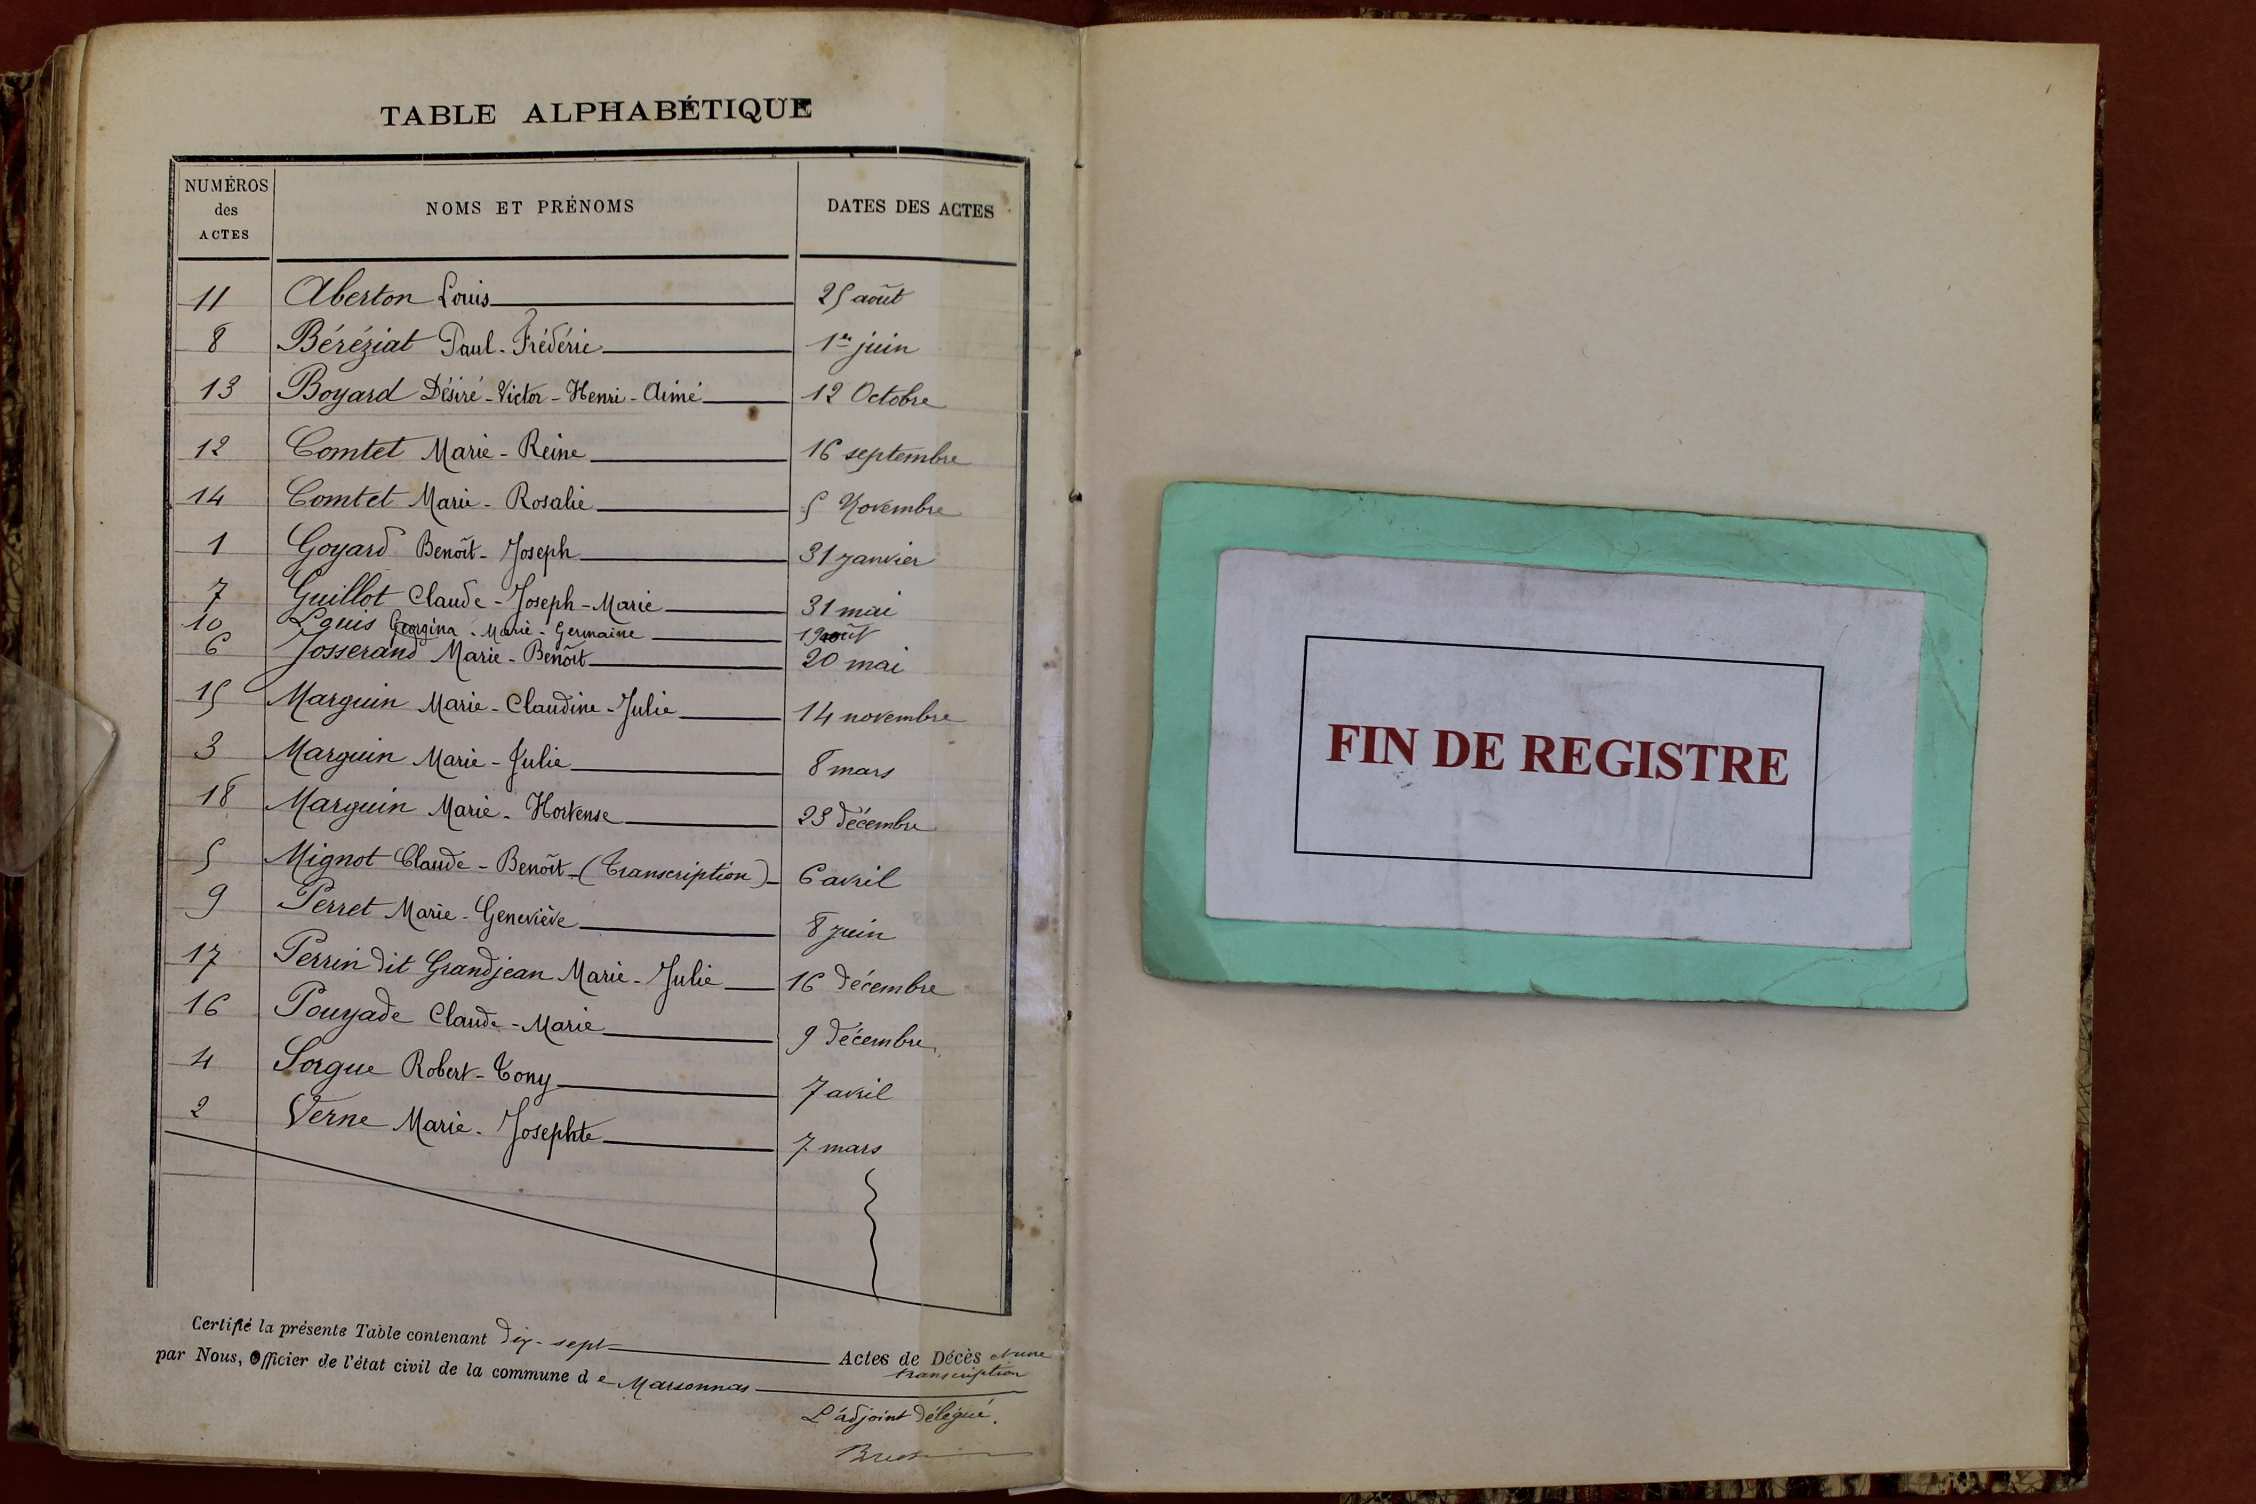 TABLE ALPHABÉTIQUE
NUMÉROS des ACTES NOMS ET PRÉNOMS DATES DES ACTES
11 Aberton Louis 25 août
8 Béréziat Paul-Frédéric 1er juin
13 Boyard Désiré-Victor-Henri-Aimé 12 Octobre
12 Comtet Marie-Reine 16 septembre
14 Comtet Marie-Rosalie 5 Novembre
1 Goyard Benoît-Joseph 31 janvier
7 Guillot Claude-Joseph-Marie 31 mai
10 Louis Georgina-Marie-Germaine 19 août
6 Josserand Marie-Benoît 20 mai
15 Marguin Marie-Claudine-Julie 14 novembre
3 Marguin Marie-Julie 8 mars
18 Marguin Marie-Hortense 23 décembre
5 Mignot Claude-Benoît-(Transcription) 6 avril
9 Perret Marie-Geneviève 8 juin
17 Perrin dit Grandjean Marie-Julie 16 décembre
16 Pouyade Claude-Marie 9 décembre
4 Sorgue Robert-Tony 7 avril
2 Verne Marie-Josephte 7 mars
Certifié la présente Table contenant dix-sept Actes de Décès et une
transcription
par Nous, Officier de l'état civil de la commune de Marsonnas
L'adjoint délégué.
FIN DE REGISTRE